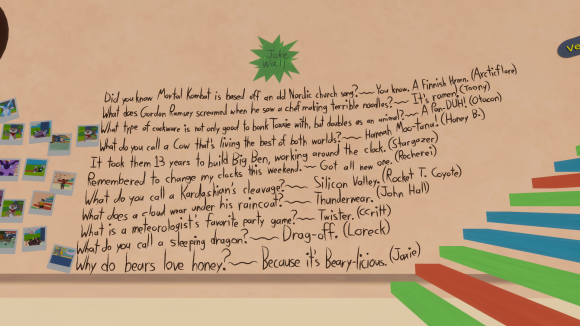 Joke
Wall
Did you know Mortal Kombat is based off an old Nordic church song?~~ You know. A Finnish Hymn. (Arcticflare)
What does Gordon Ramsey screamed when he saw a chef making terrible noodles?~~ It's ramen! (Toony)
What type of cookware is not only good to bonk Toxxie with, but doubles as an animal?~~ A Pan-DUH! (Otocon)
What do you call a Cow that's living the best of both worlds?~~ Hannah Moo-Tana! (Honey B.)
It took them 13 years to build Big Ben, working around the clock. (Stargazer)
Remembered to change my clocks this weekend.~~ Got all new one. (Rocherei)
What do you call a Kardashian's cleavage?~~ Silicon Valley. (Rocket T. Coyote)
What does a cloud wear under his raincoat?~~ Thunderwear. (John Hall)
What is a meteorologist's favorite party game?~~ Twister. (CCritt)
What do you call a sleeping dragon?~~ Drag-off. (Loreck)
Why do bears love honey?~~ Because it's Beary-licious. (Joxie)